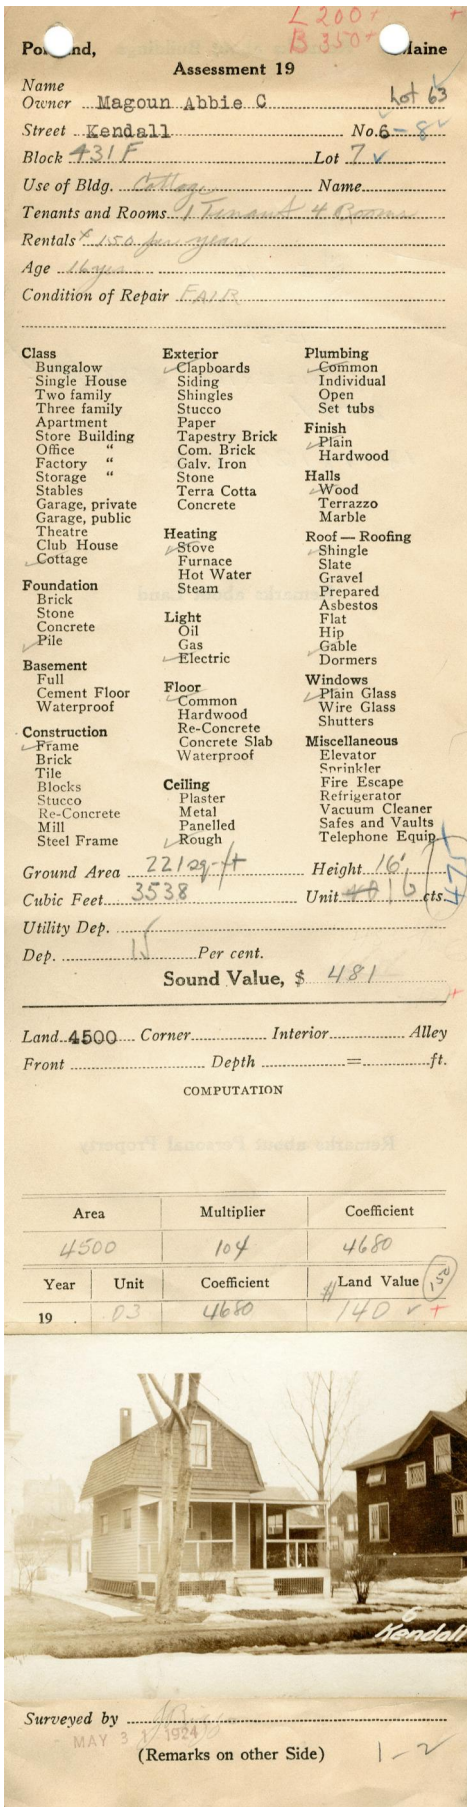 L 200 +
B 350 +
+
Portland, Maine
Assessment 19
Name
Owner Magoun Abbie C Lot 63
Street Kendall No. 6 - 8
Block 431 F Lot 7
Use of Bldg. Cottage Name
Tenants and Rooms 1 Tenant 4 Rooms
Rentals $150 per year
Age 16 yrs
Condition of Repair FAIR
Class
Bungalow
Single House
Two family
Three family
Apartment
Store Building
Office "
Factory "
Storage "
Stables
Garage, private
Garage, public
Theatre
Club House
✓ Cottage
Foundation
Brick
Stone
Concrete
✓ Pile
Basement
Full
Cement Floor
Waterproof
Construction
✓ Frame
Brick
Tile
Blocks
Stucco
Re-Concrete
Mill
Steel Frame
Exterior
✓ Clapboards
Siding
Shingles
Stucco
Paper
Tapestry Brick
Com. Brick
Galv. Iron
Stone
Terra Cotta
Concrete
Heating
✓ Stove
Furnace
Hot Water
Steam
Light
Oil
Gas
✓ Electric
Floor
✓ Common
Hardwood
Re-Concrete
Concrete Slab
Waterproof
Ceiling
Plaster
Metal
Panelled
✓ Rough
Plumbing
✓ Common
Individual
Open
Set tubs
Finish
✓ Plain
Hardwood
Halls
✓ Wood
Terrazzo
Marble
Roof — Roofing
✓ Shingle
Slate
Gravel
Prepared
Asbestos
Flat
Hip
✓ Gable
Dormers
Windows
✓ Plain Glass
Wire Glass
Shutters
Miscellaneous
Elevator
Sprinkler
Fire Escape
Refrigerator
Vacuum Cleaner
Safes and Vaults
Telephone Equip.
Ground Area 221 sq-ft Height 16'
Cubic Feet 3538 Unit 16 cts.
475
Utility Dep.
Dep. 15 Per cent.
Sound Value, $ 481
+
Land 4500 Corner Interior Alley
Front Depth = ft.
COMPUTATION
Area Multiplier Coefficient
4500 104 4680
Year Unit Coefficient Land Value 150
19 .03 4680 $140 ✓ +
6
Kendall
Surveyed by
MAY 31 1924
(Remarks on other Side) 1-2